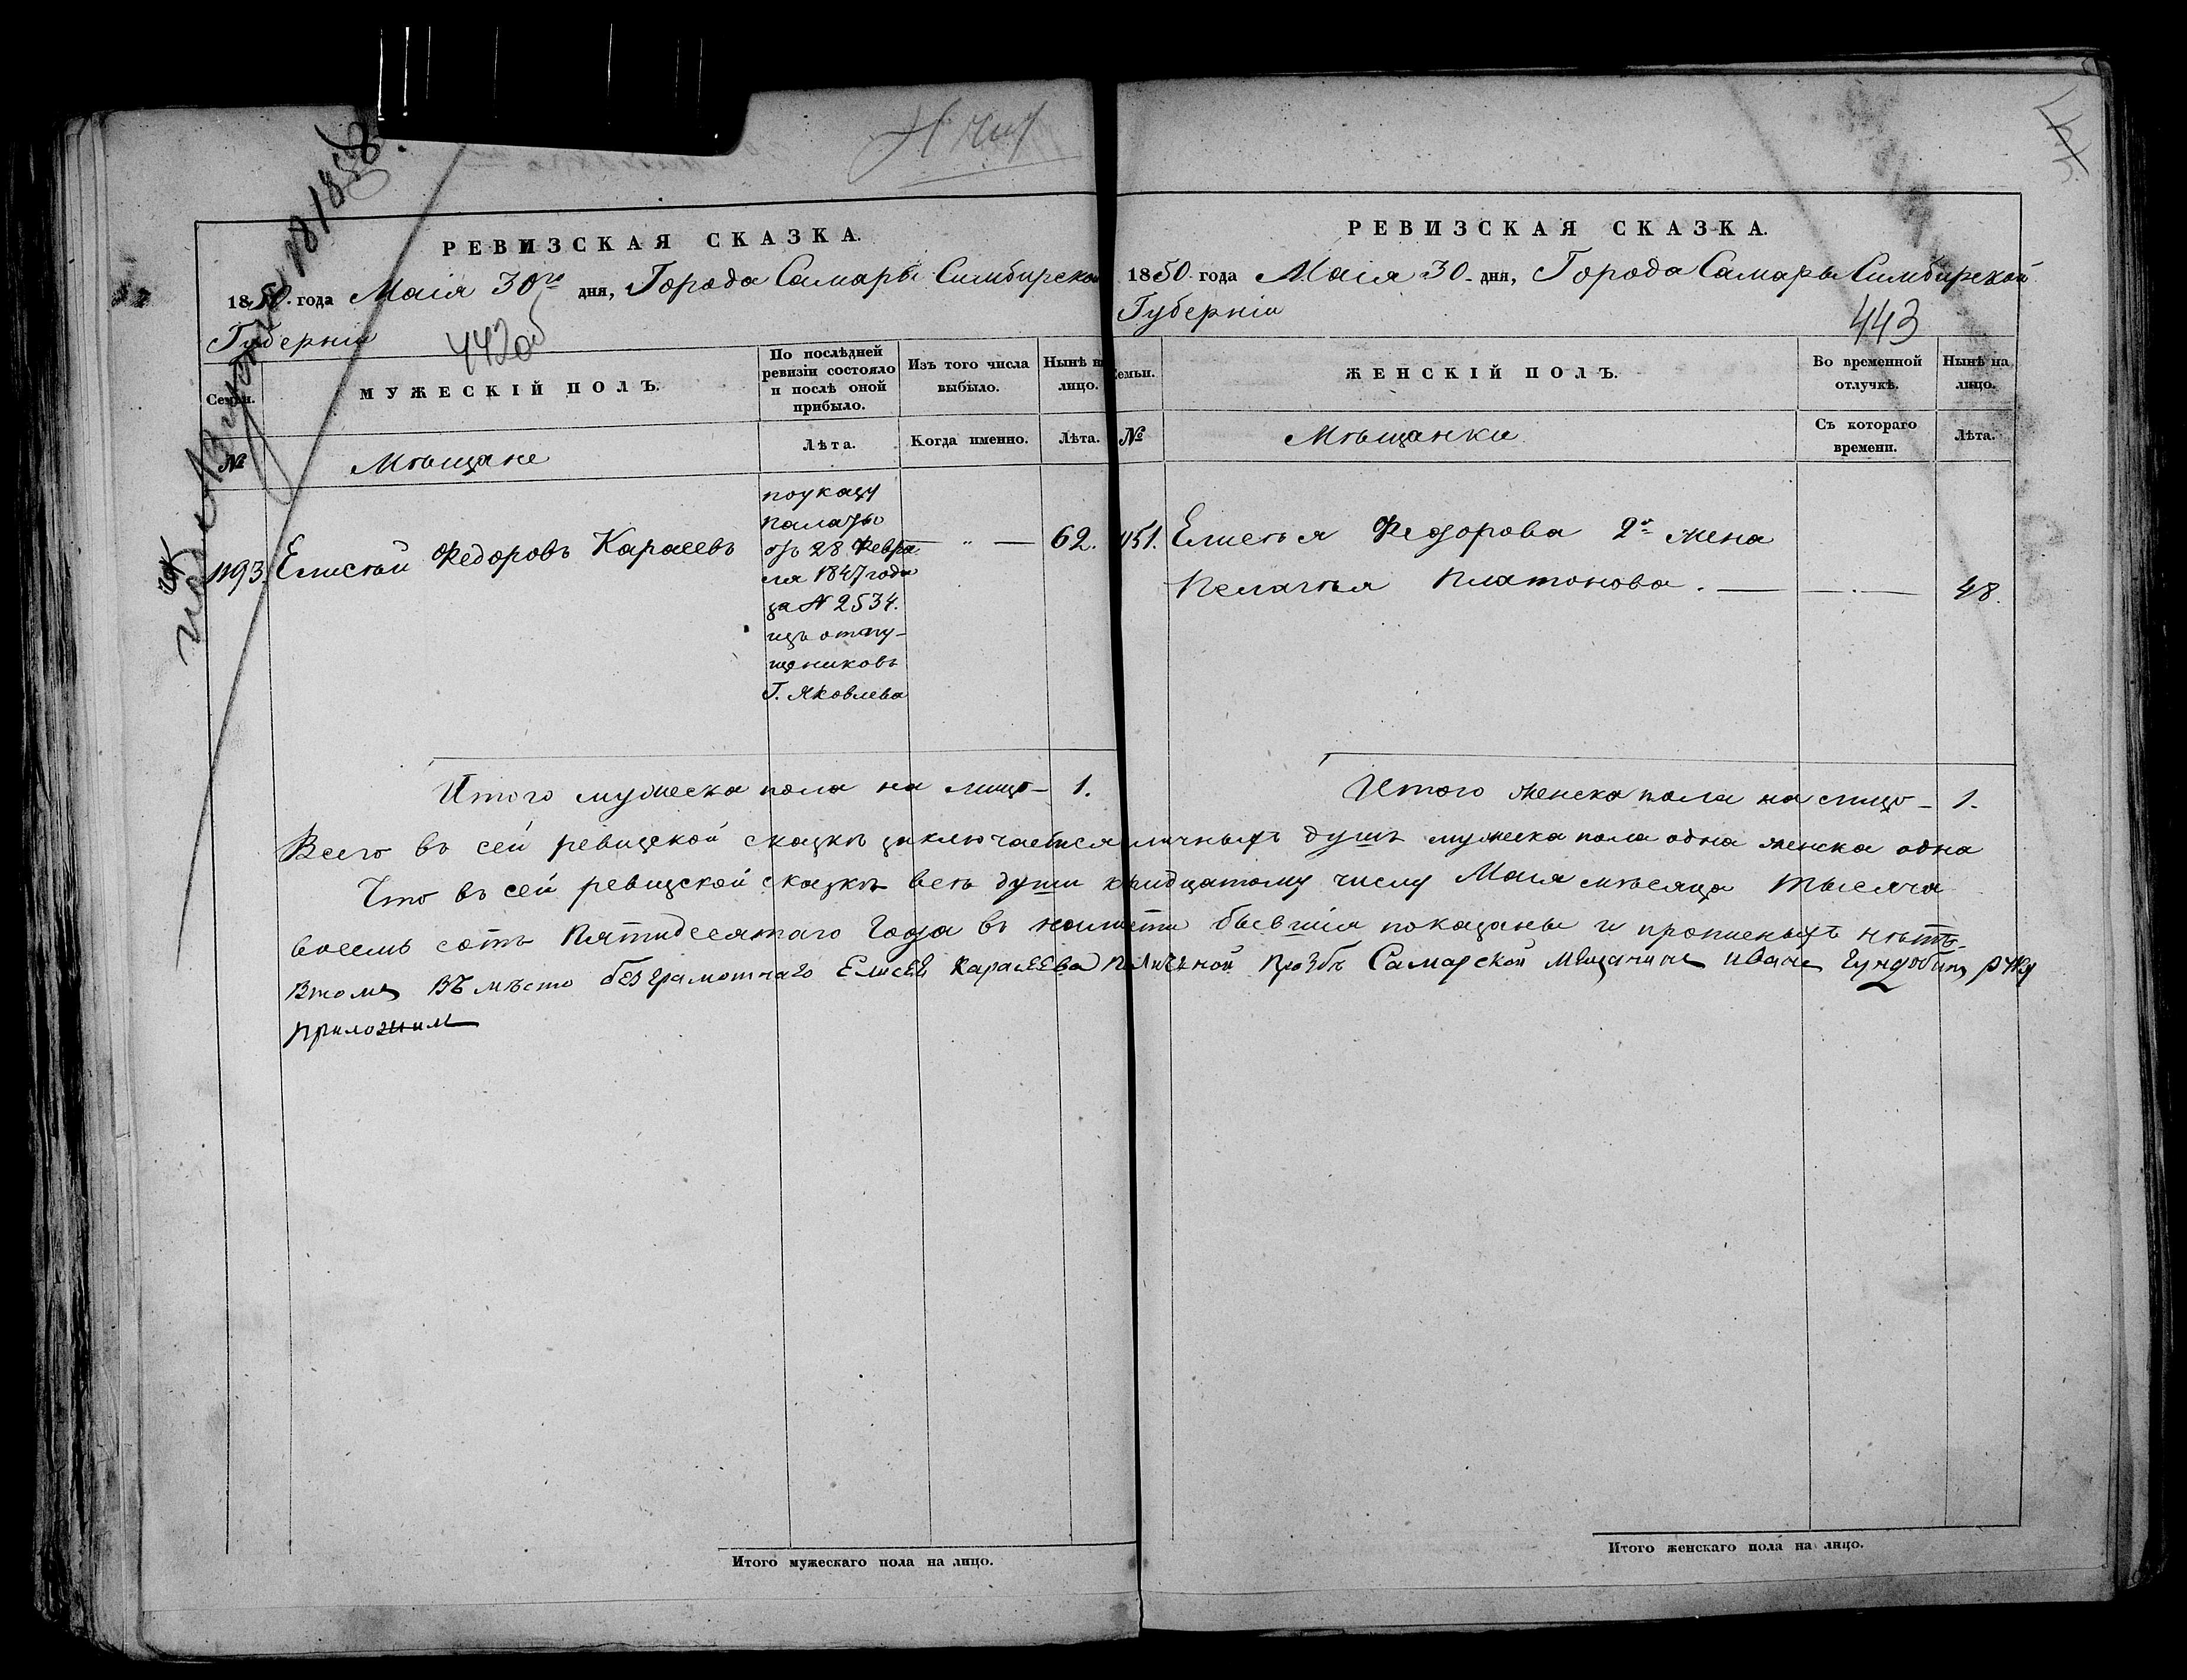 РЕВИЗСКАЯ СКАЗКА.
1850. года Маія 30го дня, Города Самары Симбирской
Губерніи
442об
Семьи.
МУЖЕСКІЙ ПОЛЪ.
По послѣдней ревизіи состояло и послѣ оной прибыло.
Изъ того числа выбыло.
Нынѣ на лицо.
№
Мѣщане
Лѣта.
Когда именно.
Лѣта.
1193. Елисѣй Федоровъ Карасевъ
по указу
палаты
отъ 28 Февра
ля 1847 года
за № 2534.
изъ отпу-
щениковъ
Г. Яковлева
— " —
62.
Итого мужеска пола на лицо — 1.
РЕВИЗСКАЯ СКАЗКА.
1850. года Маія 30. дня, Города Самары Симбирской
Губерніи
443
Семьи.
ЖЕНСКІЙ ПОЛЪ.
Во временной отлучкѣ.
Нынѣ на лицо.
№
Мѣщанки
Съ котораго времени.
Лѣта.
1151. Елисѣя Федорова 2я жена
Пелагѣя Платонова. — — . — 48.
Итого женска пола на лицо — 1.
Всего въ сей ревизской сказкѣ заключается личныхъ душъ мужеска пола одна женска одна
Что въ сей ревизской сказкѣ всѣ души къ тридцатому числу Маія мѣсяца тысяча
восемь сотъ пятидесятаго года въ бывшія показаны и прописныхъ нѣтъ.
Втомъ Въмѣсто безграмотнаго Елисея Карасева поличьной прозбѣ Самарской мѣщанинъ иванъ Гундобинъ руку
приложил
Итого мужескаго пола на лицо.
Итого женскаго пола на лицо.